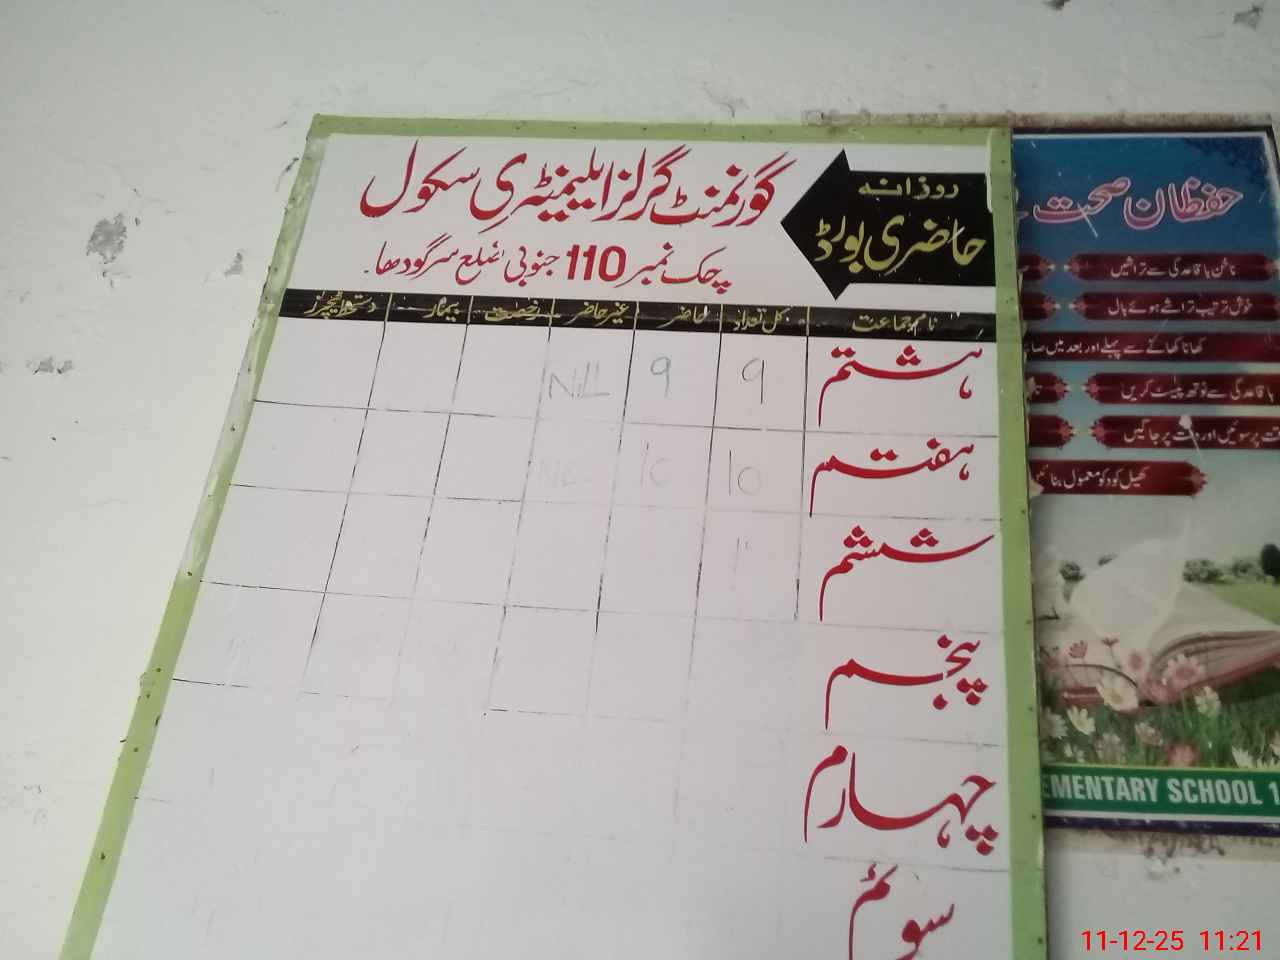 روزانہ
حاضری بورڈ
گورنمنٹ گرلز ایلیمنٹری سکول
چک نمبر 110 جنوبی ضلع سرگودھا۔
نام جماعت کل تعداد حاضر غیر حاضر رخصت بیمار دستخط ٹیچرز
ہشتم 9 9 Nill
ہفتم 10 10
ششم
پنجم
چہارم
سوئم
حفظان صحت
ناخن باقاعدگی سے تراشیں
خوش ترتیب تراشے ہوئے بال
کھانا کھانے سے پہلے اور بعد میں
باقاعدگی سے ٹوتھ پیسٹ کریں
پر سوئیں اور وقت پر جاگیں
کھیل کود کو معمول بنائیں
EMENTARY SCHOOL 1
11-12-25 11:21